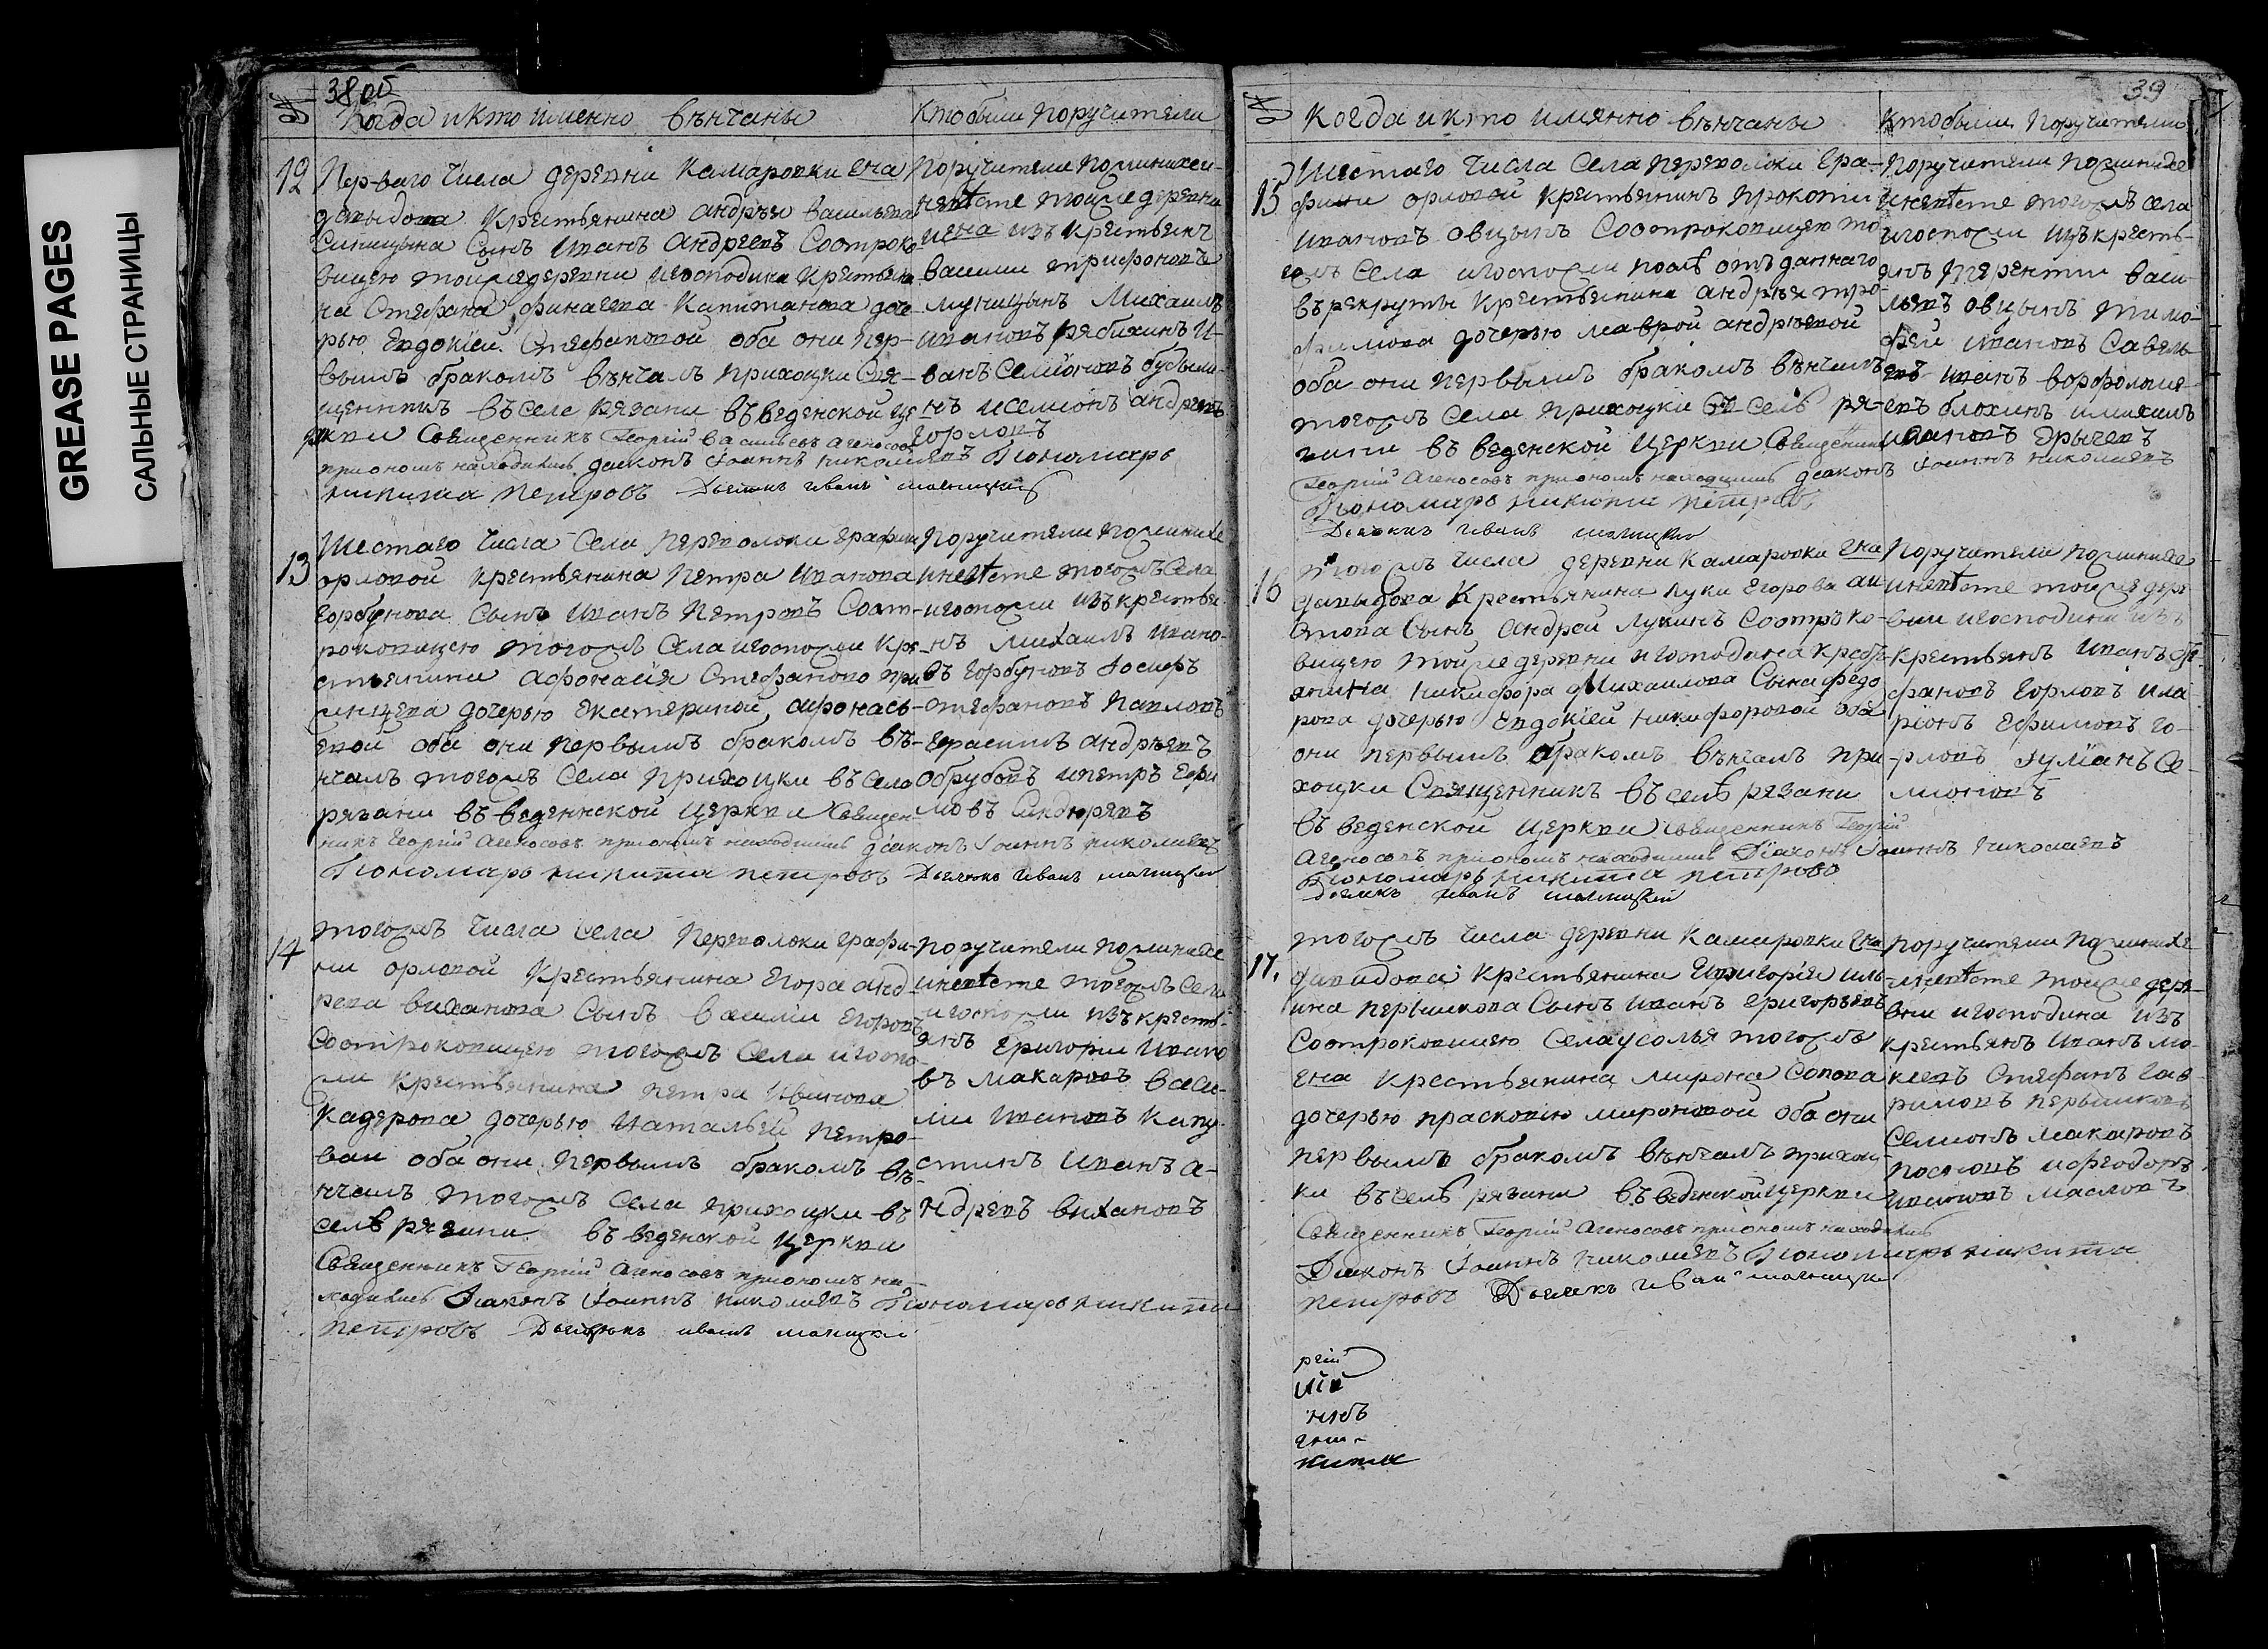 GREASE PAGES
САЛЬНЫЕ СТРАНИЦЫ
38 об
№
Когда икто именно вѣнчаны
Ктобыли поручители
12
Перваго числа деревни Камаровки Гна
давыдова крестьянина андрѣя васильева
Синицына Сынъ Иванъ Андреевъ Соотроко
вицею тойжедеревни игосподина крестьяни
на Стефана финаева Капитанова доче
рью Евдокіей Стефановой оба они пер-
вымъ бракомъ вѣнчалъ приходцки Свя-
щенникъ въселе рязани въведенской це
ркви Священникъ Георгій васильевъ агеносовъ
приономъ находились диаконъ Іоаннъ николаевъ Пономарь
никита петровъ Дьячокъ иванъ
Поручители пожинихеи
невѣсте тоижедеревни
игна изъ крестьянъ
василии трифоновъ
Михаилъ
ивановъ рябихинъ И-
ванъ Семіоновъ
нъ исемионъ андреевъ
горловъ
13
Шестаго числа Села Переволоки графини
орловой крестьянина Петра Иванова
Горбунова Сынъ Иванъ Петровъ Соот-
роковицею тогожъ Села игоспожи кре
стьянина афонасія Стефаново при
дочерью Екатериной афонась-
евой оба они первымъ бракомъ вѣ-
нчалъ тогожъ Села приходцки въ села
рязани въведеннской церкви Священ-
никъ Георгій Агеносовъ приономъ находились діаконъ Іоаннъ николаевъ
Пономарь никита петровъ Дьячокъ иванъ
Поручители пожинихе
иневѣсте тогожъ Села
игоспожи изъкрестья
нъ Михаилъ Ивано-
въ Горбуновъ Іосифъ
Стефановъ Павловъ
Герасимъ андрѣевъ
Обрубовъ ипетръ Ефи
мовъ
14
тогожъ числа Села Переволоки графи-
ни орловой Крестьянина Егора анд-
реева виханова Сынъ Василіи Егоровъ
Соотроковицею тогожъ Села игоспо-
жи крестьянина петра Иванова
Кадерова дочерью Натальей петро-
ваи оба они первымъ бракомъ вѣ-
нчалъ тогожъ Села приходцки въ
селѣ рязани въведенской церкви
Священникъ Георгій Агеносовъ приономъ на-
ходились Діаконъ Іоаннъ николаевъ Пономарь никита
петровъ Дьячокъ иванъ
поручители пожинихе
иневѣсте тогожъ Села
игоспожи изъкресть-
янъ Григории Ивано
въ Макаровъ Васи-
ліи Ивановъ Капу
стинъ Иванъ а-
ндреевъ вихановъ
39
№
Когда икто имянно вѣнчаны
Ктобыли Поручители
15
Шестаго числа Села Переволоки Гра-
фини орловой крестьянинъ Прокофи
Ивановъ овцынъ Соотроковицею то
гожъ села игоспожи пожѣ отъданнаго
върекруты крестьянина андрѣя тро-
фимова дочерью маврой андрѣевой
оба они первымъ бракомъ вѣнчалъ
тогожъ села приходцки въ селѣ ря-
зани въ веденской церкви Священникъ
Георгій Агеносовъ приономъ находились діаконъ Іоаннъ николаевъ
Пономарь никита петровъ
Дьячокъ иванъ
Поручители пожинихе
иневѣсте тогожъ села
игоспожи изъкресть-
янъ терентіи васи-
льевъ овцынъ тимо-
фей ивановъ Савель-
евъ иванъ ворфоломе-
евъ блохинъ имихаилъ
ивановъ Ерычевъ
16
тогожъ числа деревни Камаровки Гна
давыдова Крестьянина Луки Егорова
Сынъ андрей лукинъ Соотроко-
вицею тойжедеревни игосподина кресть
янина никифора Михаилова Сына федо
рова дочерью Евдокіей никифоровой оба
они первымъ бракомъ вѣнчалъ при
ходцки Священникъ въ селѣ рязани
въ веденской церкви Священникъ Георгій
Агеносовъ приономъ находились Діаконъ Іоаннъ николаевъ
Пономарь никита петровъ
Дьячокъ иванъ
Поручители пожинихе
иневѣсте тоиже дере
вни игосподина изъ
крестьянъ Иванъ
фановъ Горловъ ила
ріонъ Ефимовъ го-
рловъ Се-
мионовъ
17.
тогожъ числа деревни Камаровки Гна
давидова крестьянина Григорія иль
ина первшикова Сынъ иванъ григорьевъ
Соотроковицею Селаусолья тогожъ
Гна крестьянина мирона Сопова
дочерью прасковію мироновой оба они
первымъ бракомъ вѣнчалъ приходц
ки въселѣ рязани въведенской церкви
Священникъ Георгій Агеносовъ приономъ находились
Диаконъ Іоаннъ николаевъ Пономарь никита
петровъ Дьячекъ иванъ
поручители пожинихе
иневѣсте тоиже дере-
вни игосподина изъ
крестьянъ Иванъ мо-
Стефанъ гав
риловъ
Семионъ макаровъ
ифеодоръ
ивановъ масловъ
ргій
ній
ннъ
кита